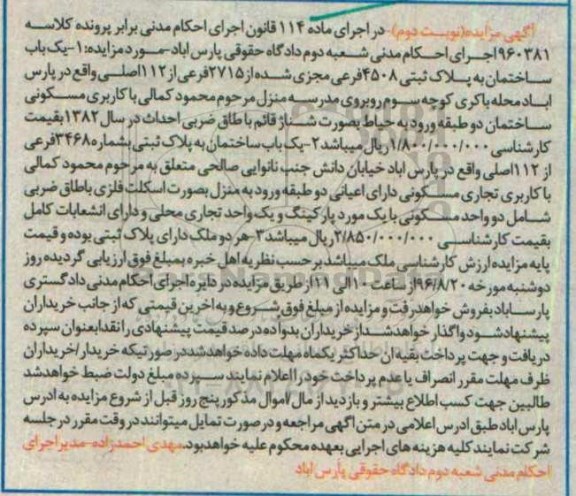 آگهی مزایده(نوبت دوم)-در اجرای ماده ۱۱۴ قانون اجرای احکام مدنی برابر پرونده کلاسه
۹۶۰۳۸۱اجرای احکام مدنی شعبه دوم دادگاه حقوقی پارس اباد-مورد مزایده:۱-یک باب
ساختمان به پلاک ثبتی ۴۵۰۸فرعی مجزی شده از۲۷۱۵فرعی از۱۱۲اصلی واقع در پارس
اباد محله باکری کوچه سوم روبروی مدرسه منزل مرحوم محمود کمالی با کاربری مسکونی
ساختمان دو طبقه ورود به حیاط بصورت شناژ قائم با طاق ضربی احداث در سال ۱۳۸۲بقیمت
کارشناسی ۱/۸۰۰/۰۰۰/۰۰۰ریال میباشد۲-یک باب ساختمان به پلاک ثبتی بشماره۳۴۶۸فرعی
از ۱۱۲اصلی واقع در پارس آباد خیابان دانش جنب نانوایی صالحی متعلق به مرحوم محمود کمالی
با کاربری تجاری مسکونی دارای اعیانی دو طبقه ورود به منزل بصورت اسکلت فلزی باطاق ضربی
شامل دو واحد مسکونی با یک مورد پارکینگ و یک واحد تجاری محلی و دارای انشعابات کامل
بقیمت کارشناسی ۲/۸۵۰/۰۰۰/۰۰۰ریال میباشد ۳-هر دو ملک دارای پلاک ثبتی بوده و قیمت
پایه مزایده ارزش کارشناسی ملک میباشد برحسب نظریه اهل خبره بمبلغ فوق ارزیابی گردیده روز
دوشنبه مورخه ۹۶/۸/۲۰از ساعت ۱۰الی ۱۱از طریق مزایده در دایره اجرای احکام مدنی دادگستری
پارساباد بفروش خواهد رفت و مزایده از مبلغ فوق شروع و به اخرین قیمتی که از جانب خریداران
پیشنهاد شود واگذار خواهد شد از خریداران بدوا ده درصد قیمت پیشنهادی را نقدا بعنوان سپرده
دریافت و جهت پرداخت بقیه ان حداکثر یکماه مهلت داده خواهد شد در صورتیکه خریدار/خریداران
ظرف مهلت مقرر انصراف یا عدم پرداخت خود را اعلام نمایند سپرده مبلغ دولت ضبط خواهد شد
طالبین جهت کسب اطلاع بیشتر و بازدید از مال/اموال مذکور پنج روز قبل از شروع مزایده به ادرس
پارس اباد طبق ادرس اعلامی در متن اگهی مراجعه و در صورت تمایل میتوانند در وقت مقرر در جلسه
شرکت نمایند کلیه هزینه های اجرایی بعهده محکوم علیه خواهد بود.مهدی احمدزاده-مدیر اجرای
احکام مدنی شعبه دوم دادگاه حقوقی پارس اباد